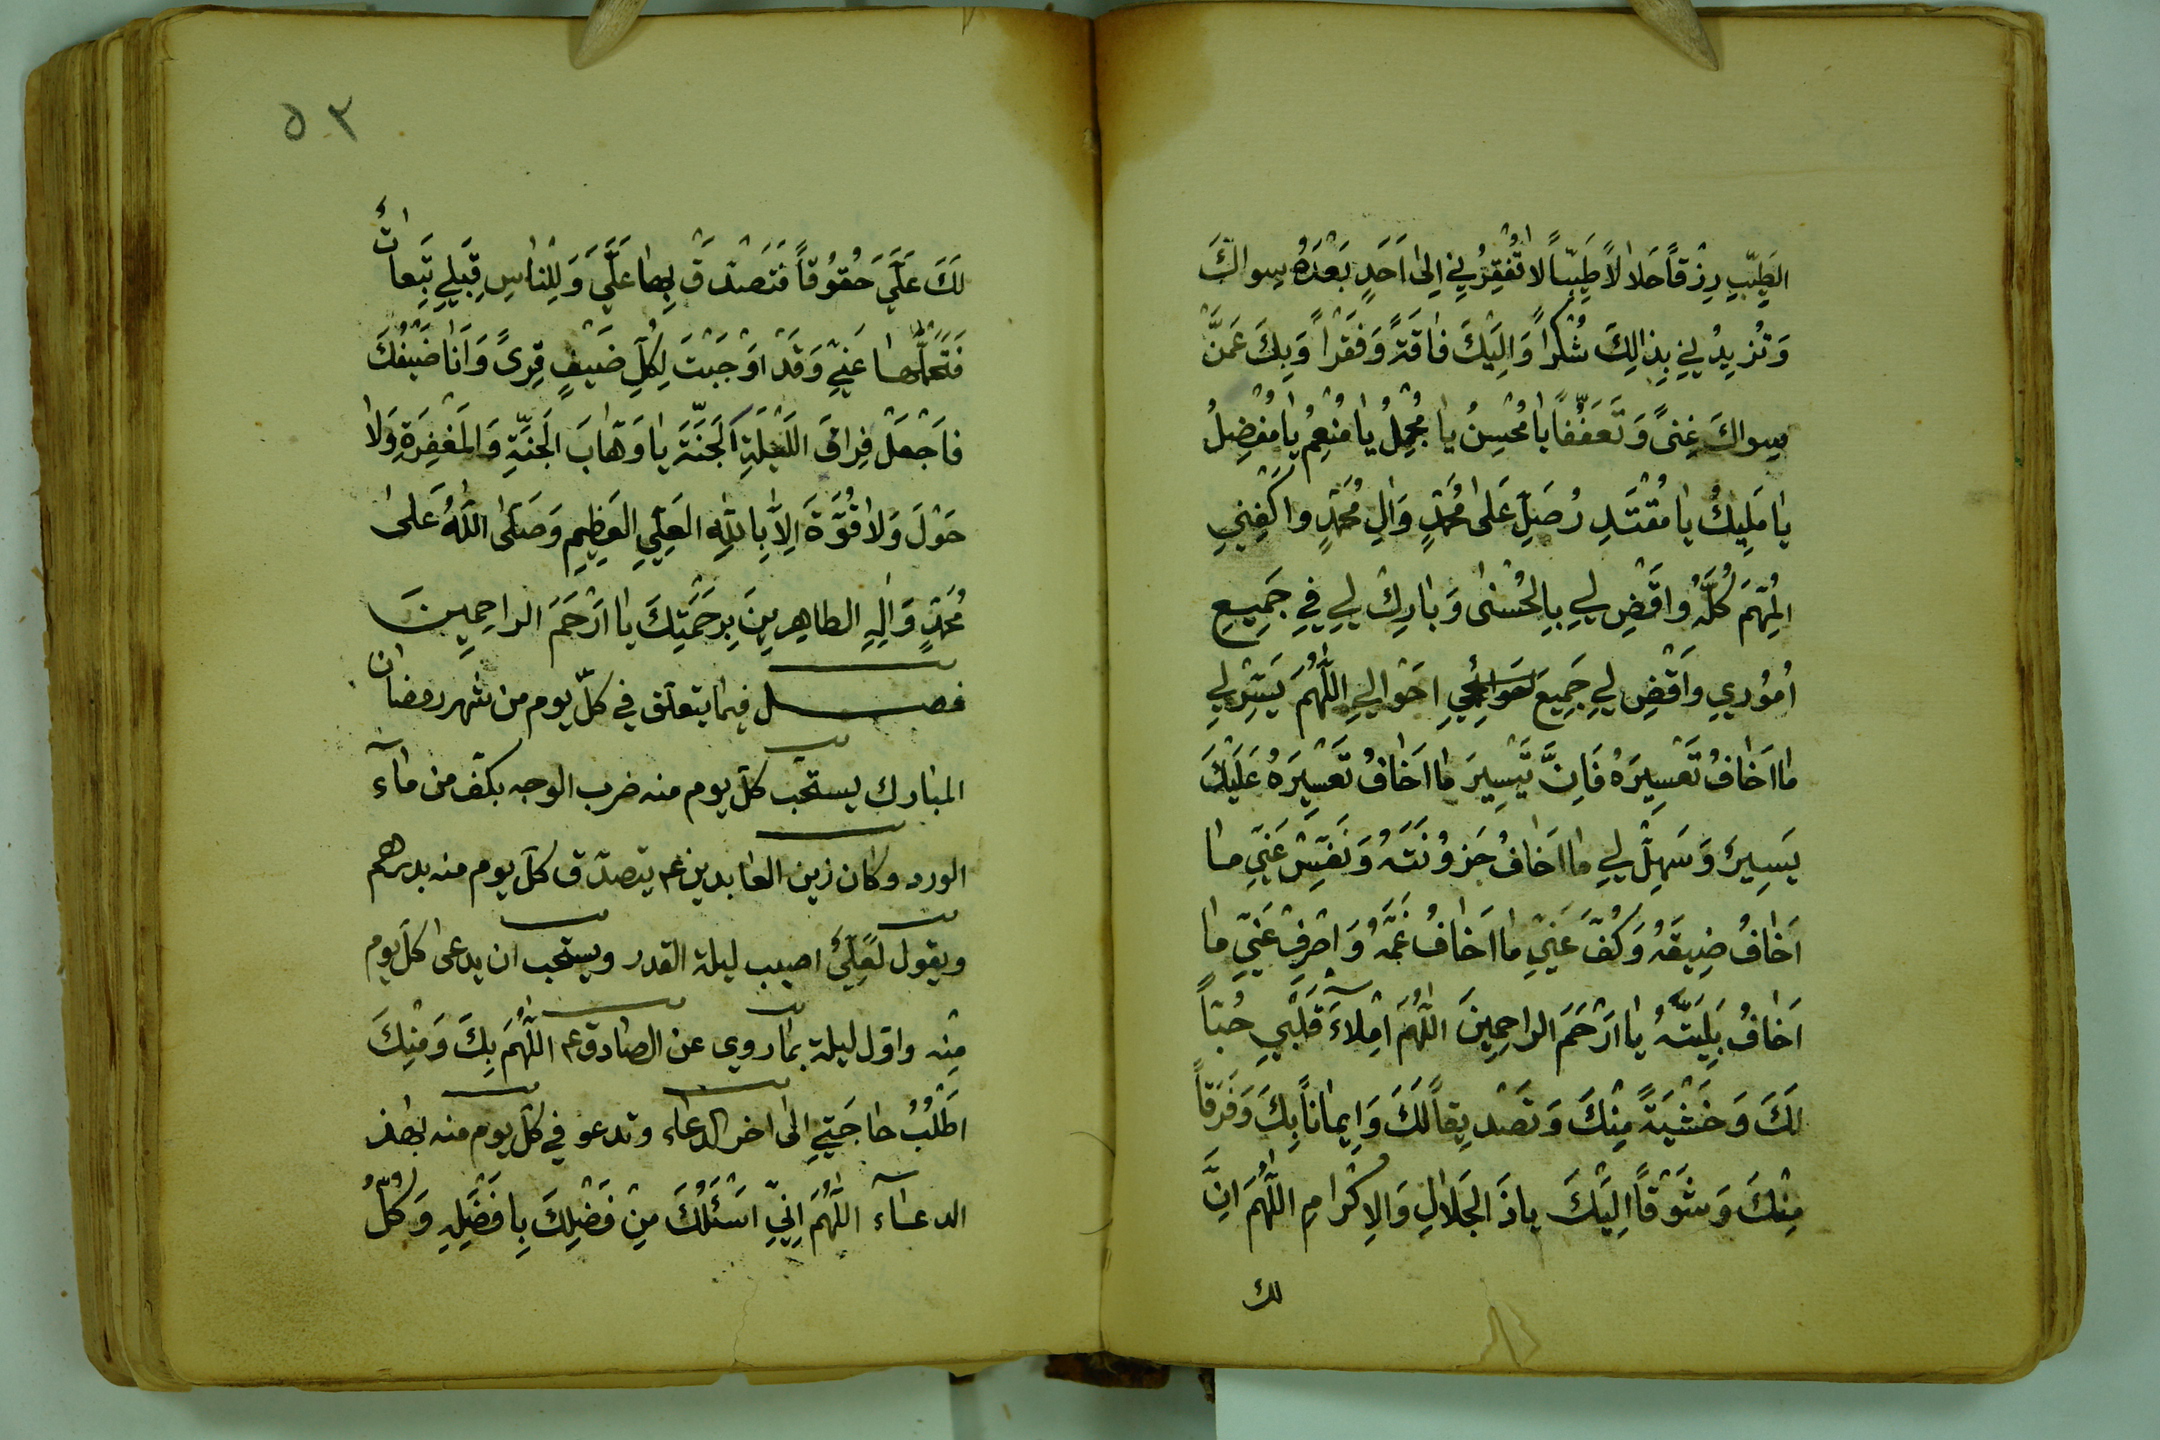 الطَيِّبِ رِزْقاً حَلالاً طَيِّباً لا تُفْقِرُنِي اِلى اَحَدٍ بَعْدَهُ سِواكَ
وَتُزِيدُنِي بِذلِكَ شُكْراً وَاِلَيْكَ فاقَةً وَفَقْراً وَبِكَ عَمَّنْ
سِواكَ غِنىً وَتَعَفُّفاً يا مُحْسِنُ يا مُجْمِلُ يا مُنْعِمُ يا مُفْضِلُ
يا مَلِيكُ يا مُقْتَدِرُ صَلِّ عَلى مُحَمَّدٍ وَالِ مُحَمَّدٍ وَاكْفِنِي
المُهِمَّ كُلَّهُ وَاقْضِ لِي بِالحُسْنى وَبارِكْ لِي فِي جَمِيعِ
اُمُورِي وَاقْضِ لِي جَمِيعَ حَوائِجِي اَحْوالِي اللّهُمَّ يَسِّرْ لِي
ما اَخافُ تَعْسِيرَهُ فَاِنَّ تَيْسِيرَ ما اَخافُ تَعْسِيرَهُ عَلَيْكَ
يَسِيرٌ وَسَهِّلْ لِي ما اَخافُ حُزُونَتَهُ وَنَفِّسْ عَنِّي ما
اَخافُ ضِيقَهُ وَكُفَّ عَنِّي ما اَخافُ غَمَّهُ وَاصْرِفْ عَنِّي ما
اَخافُ بَلِيَّتَهُ يا اَرْحَمَ الراحِمِينَ اللّهُمَّ امْلاءْ قَلْبِي حُبّاً
لَكَ وَخَشْيَةً مِنْكَ وَتَصْدِيقاً لَكَ وَاِيماناً بِكَ وَفَرَقاً
مِنْكَ وَشَوْقاً اِلَيْكَ ياذَ الجَلالِ وَالاِكْرامِ اللّهُمَّ اِنَّ
لك
٥٣
لَكَ عَلَيَّ حُقُوقاً فَتَصَدَّقْ بِها عَلَيَّ وَلِلناسِ قِبَلِي تَبِعاتٌ
فَتَحَمَّلْها عَنِّي وَقَدْ اَوْجَبْتَ لِكُلِّ ضَيْفٍ قِرىً وَاَنا ضَيْفُكَ
فَاجْعَلْ قِرايَ اللَيْلَةَ الجَنَّةَ يا وَهّابَ الجَنَّةِ وَالمَغْفِرَةِ وَلا
حَوْلَ وَلا قُوَّةَ اِلاّ بِاللّهِ العَلِيِّ العَظِيمِ وَصَلَّى اللّهُ عَلى
مُحَمَّدٍ وَالِهِ الطاهِرِينَ بِرَحْمَتِكَ يا اَرْحَمَ الراحِمِينَ
فصل فيما يتعلق في كلّ يوم من شهر رمضان
المبارك يستحب كلّ يوم منه ضرب الوجه بكفّ من ماء
الورد وكان زين العابدين ع يتصدّق كلّ يوم منه بدرهم
ويقول لَعَلِّي اصيب ليلة القدر ويستحب ان يدعى كلّ يوم
مِنْه واوّل ليلة بما روي عن الصادق ع اللّهُمَّ بِكَ وَمِنْكَ
اَطْلُبُ حاجَتِي الى اخر الدعاء وتدعو في كلّ يوم منه بهذ
الدعاء اللّهُمَّ اِنِّي اَسْئَلُكَ مِنْ فَضْلِكَ بِاَفْضَلِهِ وَكُلُّ